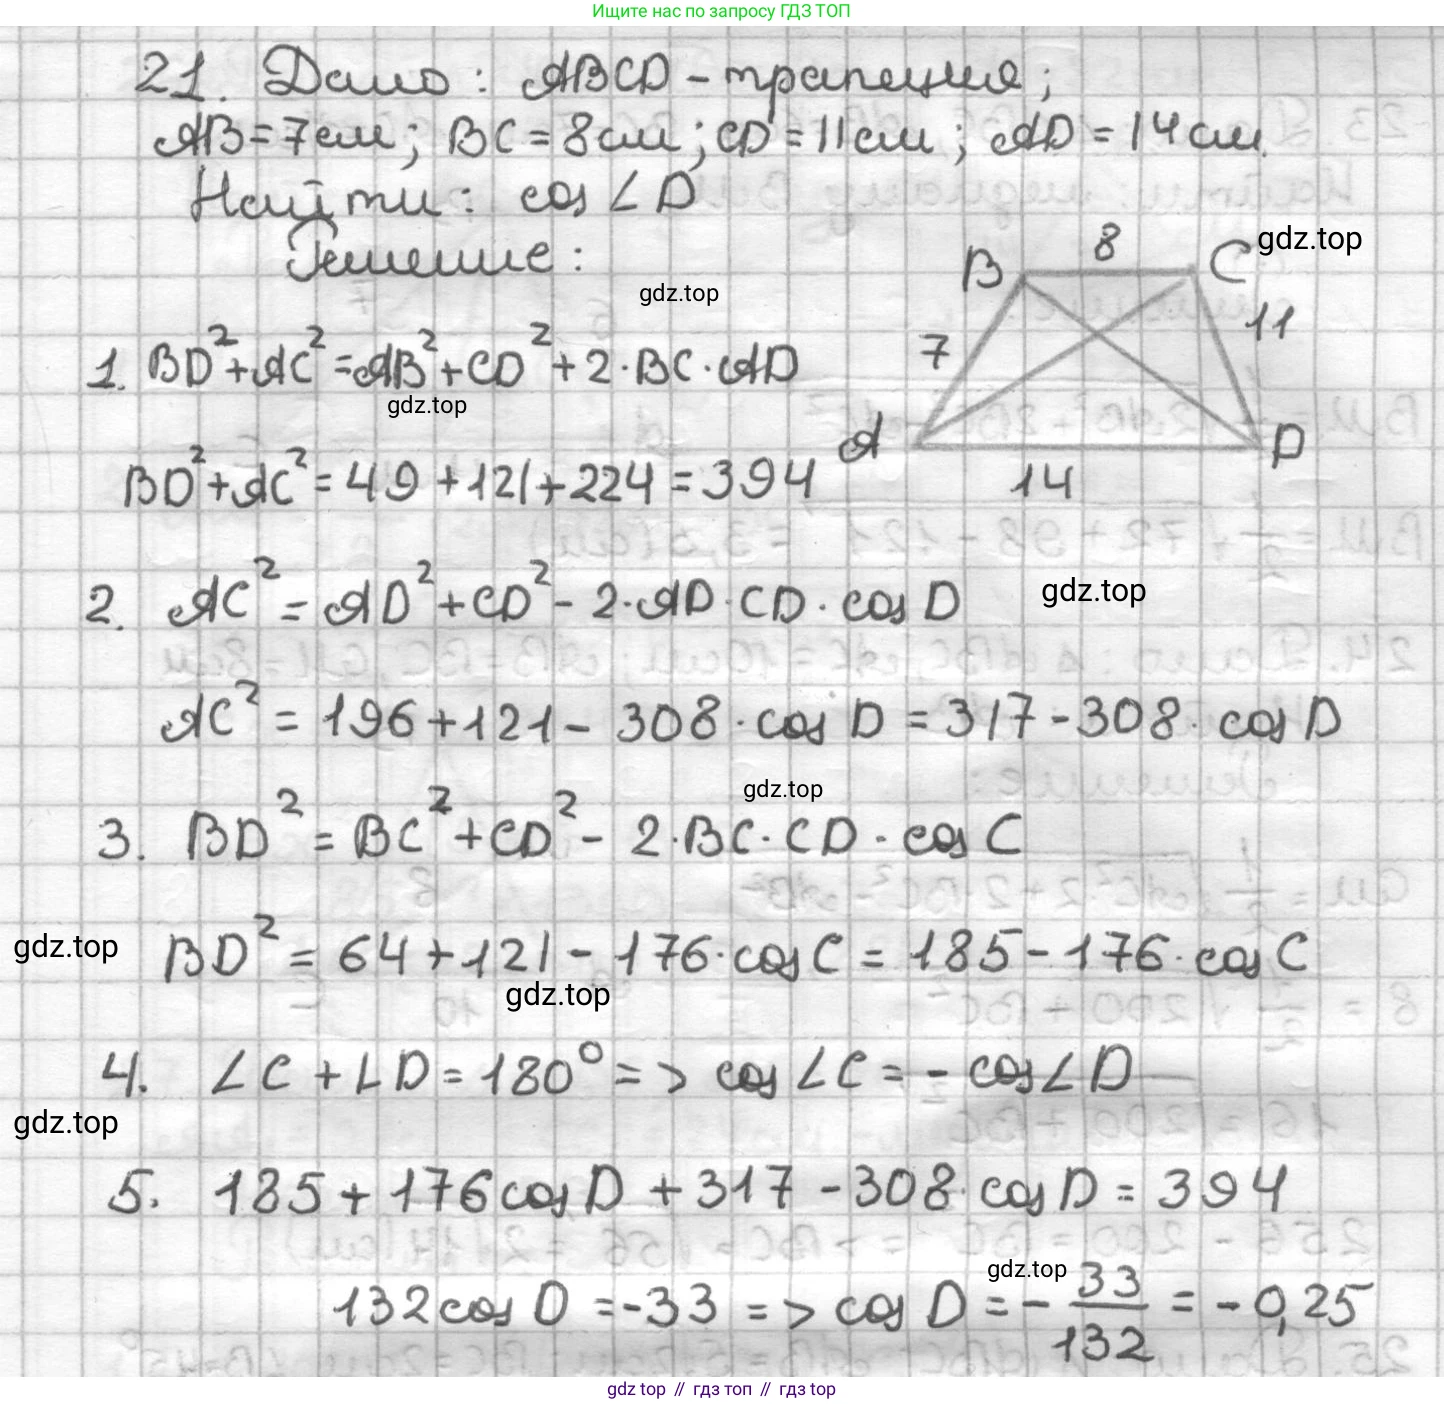 Ищите нас по запросу ГДЗ ТОП
21. Дано: ABCD - трапеция;
AB = 7см; BC = 8см; CD = 11см; AD = 14см.
Найти: cos ∠D
Решение:
B 8 C gdz.top
gdz.top
7 11
1. BD² + AC² = AB² + CD² + 2·BC·AD
gdz.top
A 14 D
BD² + AC² = 49 + 121 + 224 = 394
2. AC² = AD² + CD² - 2·AD·CD·cos D
gdz.top
AC² = 196 + 121 - 308·cos D = 317 - 308·cos D
gdz.top
3. BD² = BC² + CD² - 2·BC·CD·cos C
gdz.top
BD² = 64 + 121 - 176·cos C = 185 - 176·cos C
gdz.top
4. ∠C + ∠D = 180° => cos ∠C = - cos ∠D
gdz.top
5. 185 + 176 cos D + 317 - 308·cos D = 394
gdz.top
132 cos D = -33 => cos D = - 33/132 = - 0,25
gdz top // гдз топ // гдз top